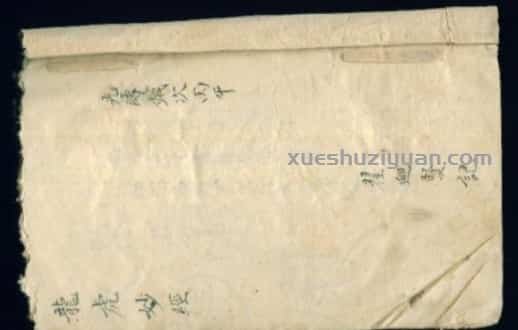 光緒歲次丙午
xueshuziyuan.com
記
龍虎妙經